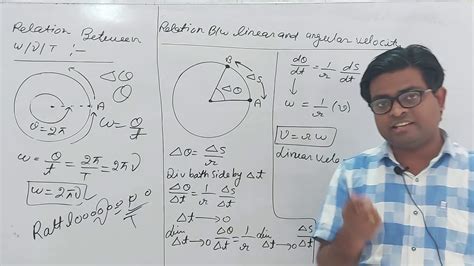 Relation Between
W/ν/T :-
Δθ
θ
A
θ = 2π
W = θ/t
W = θ/t = 2π/T = 2πν
W = 2πν
Relation B/w linear and angular velocity
B
ΔS
Δθ
A
r
Δθ = ΔS/r
Div both side by Δt
Δθ/Δt = 1/r ΔS/Δt
Δt → 0
lim Δt → 0 Δθ/Δt = 1/r lim Δt → 0 ΔS/Δt
dθ/dt = 1/r dS/dt
w = 1/r (v)
v = rw
Linear Velo